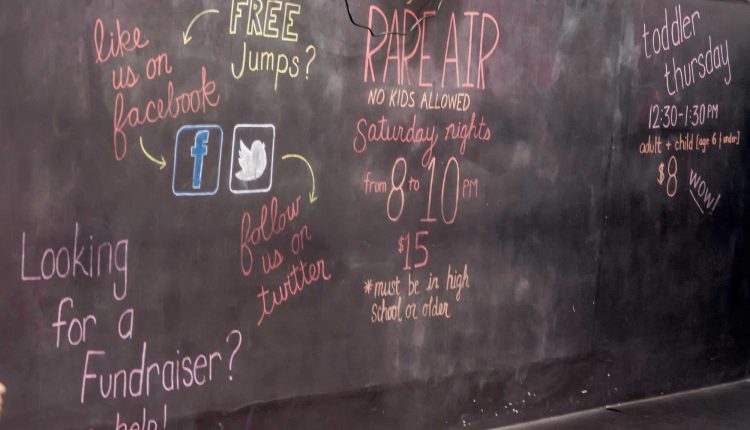 like
us on
facebook
FREE
Jumps?
f
follow
us on
twitter
Looking
for a
Fundraiser?
help!
RARE AIR
NO KIDS ALLOWED
Saturday nights
from 8 to 10 PM
$15
*must be in high
school or older
toddler
thursday
12:30-1:30 PM
adult + child [age 6 | under]
$8 wow!